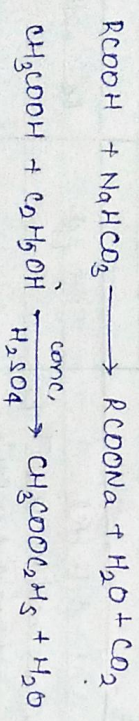 RCOOH + NaHCO₃ ⟶ RCOONa + H₂O + CO₂
CH₃COOH + C₂H₅OH conc, H₂SO₄ ⟶ CH₃COOC₂H₅ + H₂O